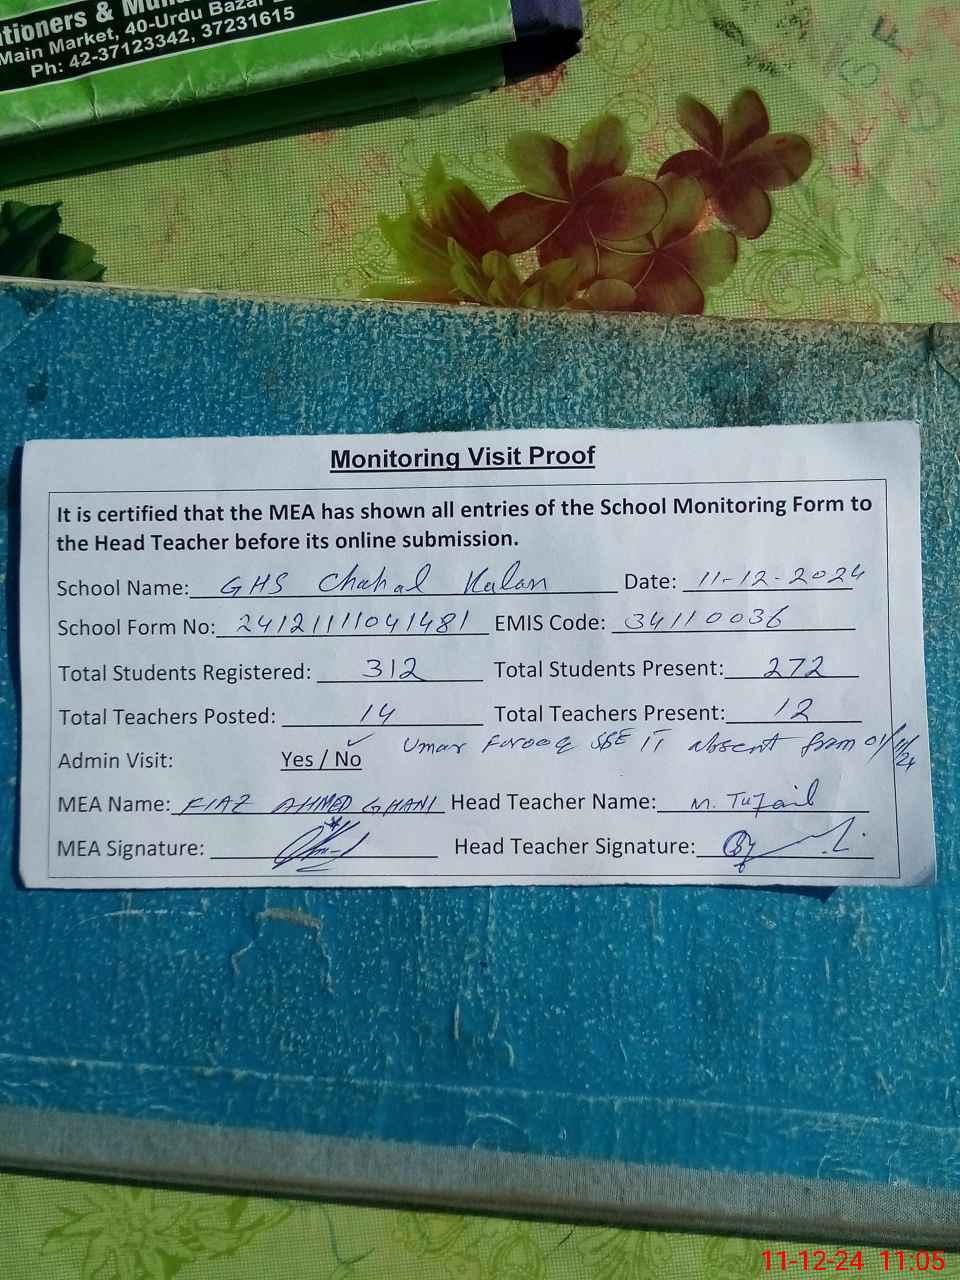 tioners &
Main Market, 40-Urdu Bazar
Ph: 42-37123342, 37231615
Monitoring Visit Proof
It is certified that the MEA has shown all entries of the School Monitoring Form to
the Head Teacher before its online submission.
School Name: GHS Chahal Kalan Date: 11-12-2024
School Form No: 24121111041481 EMIS Code: 34110036
Total Students Registered: 312 Total Students Present: 272
Total Teachers Posted: 14 Total Teachers Present: 12
Umar Farooq SSE IT absent from 01/11/24
Admin Visit: Yes / No
MEA Name: FIAZ AHMED GHANI Head Teacher Name: M. Tufail
MEA Signature: Head Teacher Signature:
11-12-24 11:05